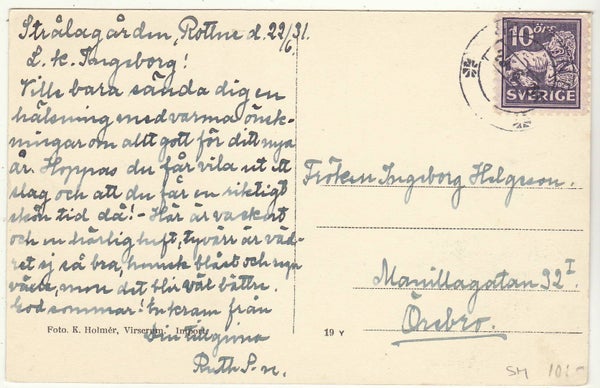 Strålagården, Rottne d. 29/6 31.
L. k. Ingeborg!
Ville bara sända dig en
hälsning med varma önsk-
ningar om allt gott för ditt nya
år. Hoppas du får vila ut ett
slag och att du får en riktigt
skön tid då! - Här är vackert
och en härlig luft, tyvärr är väd-
ret ej så bra, hemsk blåst och
men det blir väl bättre.
God sommar! En kram från
din tillgivna
Ruth S-n.
Foto. K. Holmér, Virserum. Import.
19 Y
10 ÖRE
SVERIGE
Fröken Ingeborg Helgesson.
Manillagatan 32 I.
Örebro.
SM 10:-